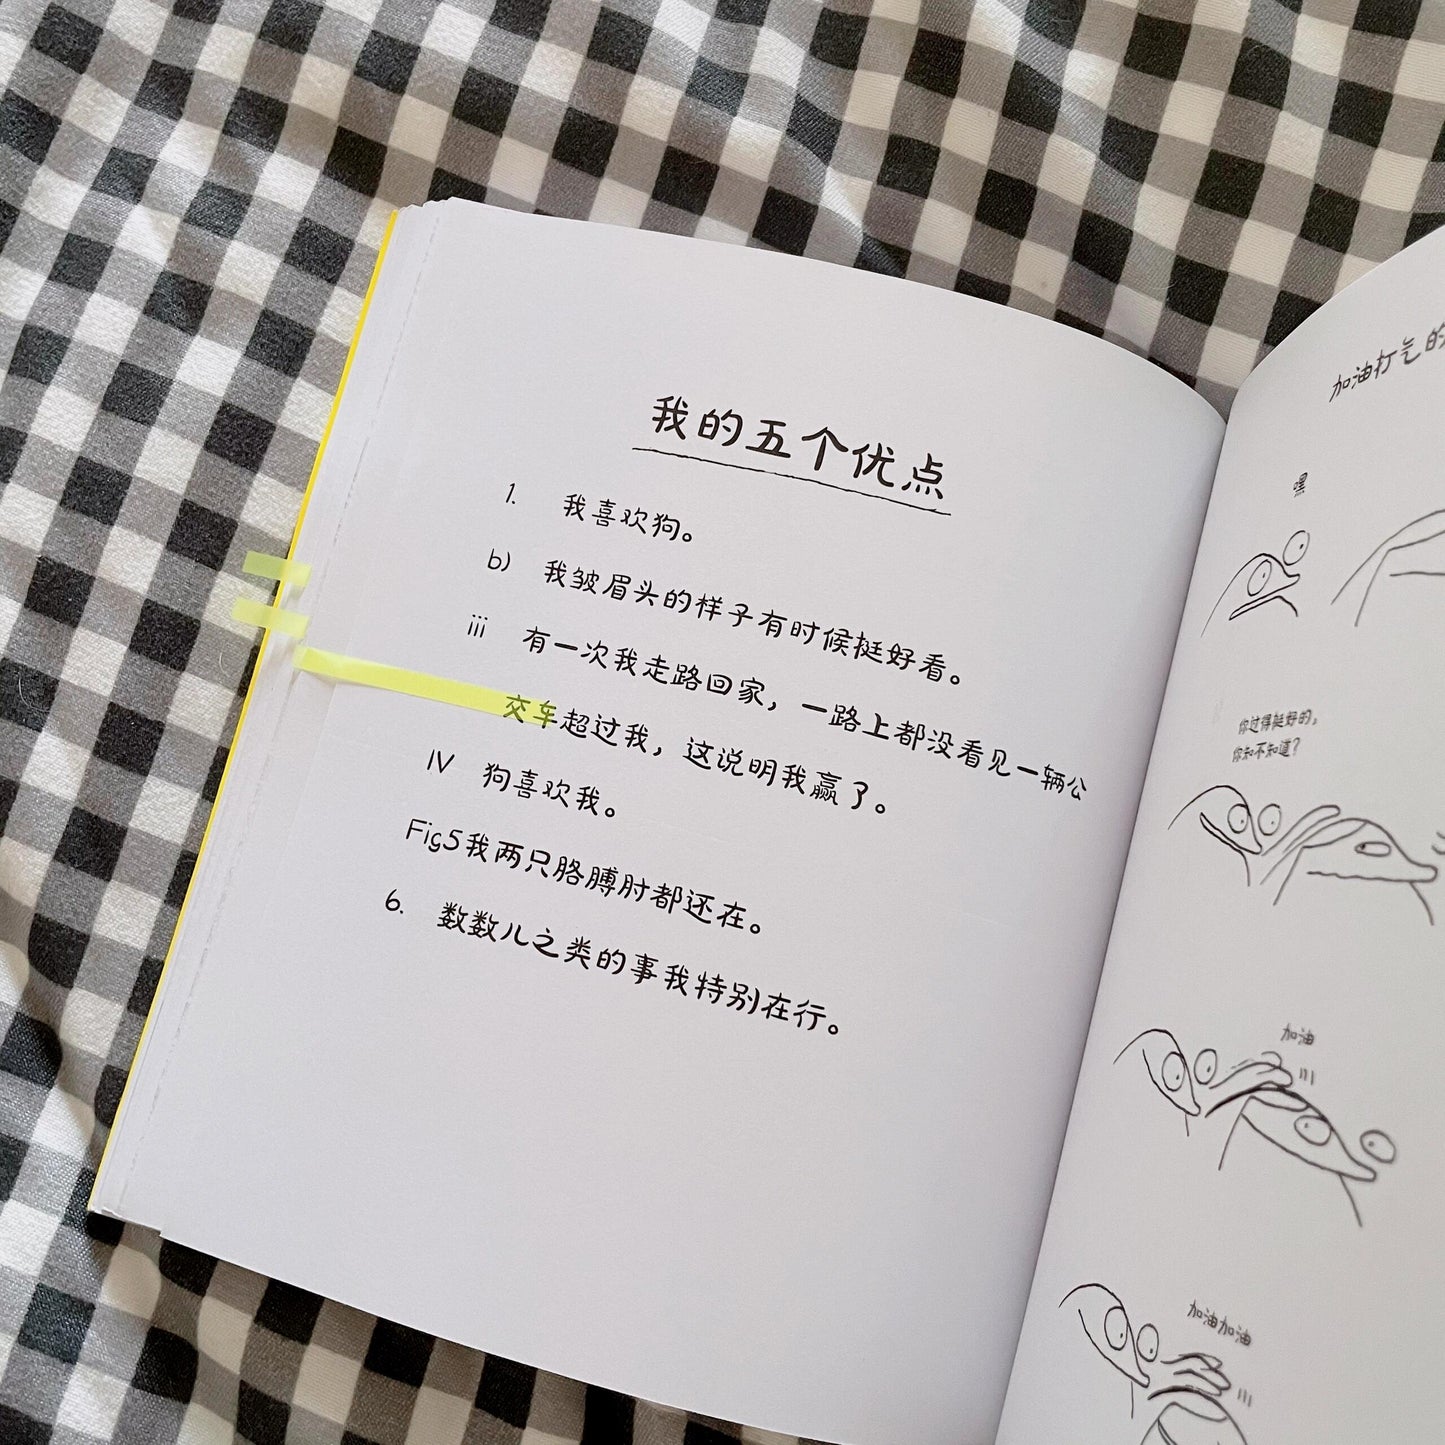 我的五个优点
1. 我喜欢狗。
b) 我皱眉头的样子有时候挺好看。
iii 有一次我走路回家，一路上都没看见一辆公
交车超过我，这说明我赢了。
IV 狗喜欢我。
Fig5我两只胳膊肘都还在。
6. 数数儿之类的事我特别在行。
加油打气的
嘿
你过得挺好的，
你知不知道？
加油
加油加油